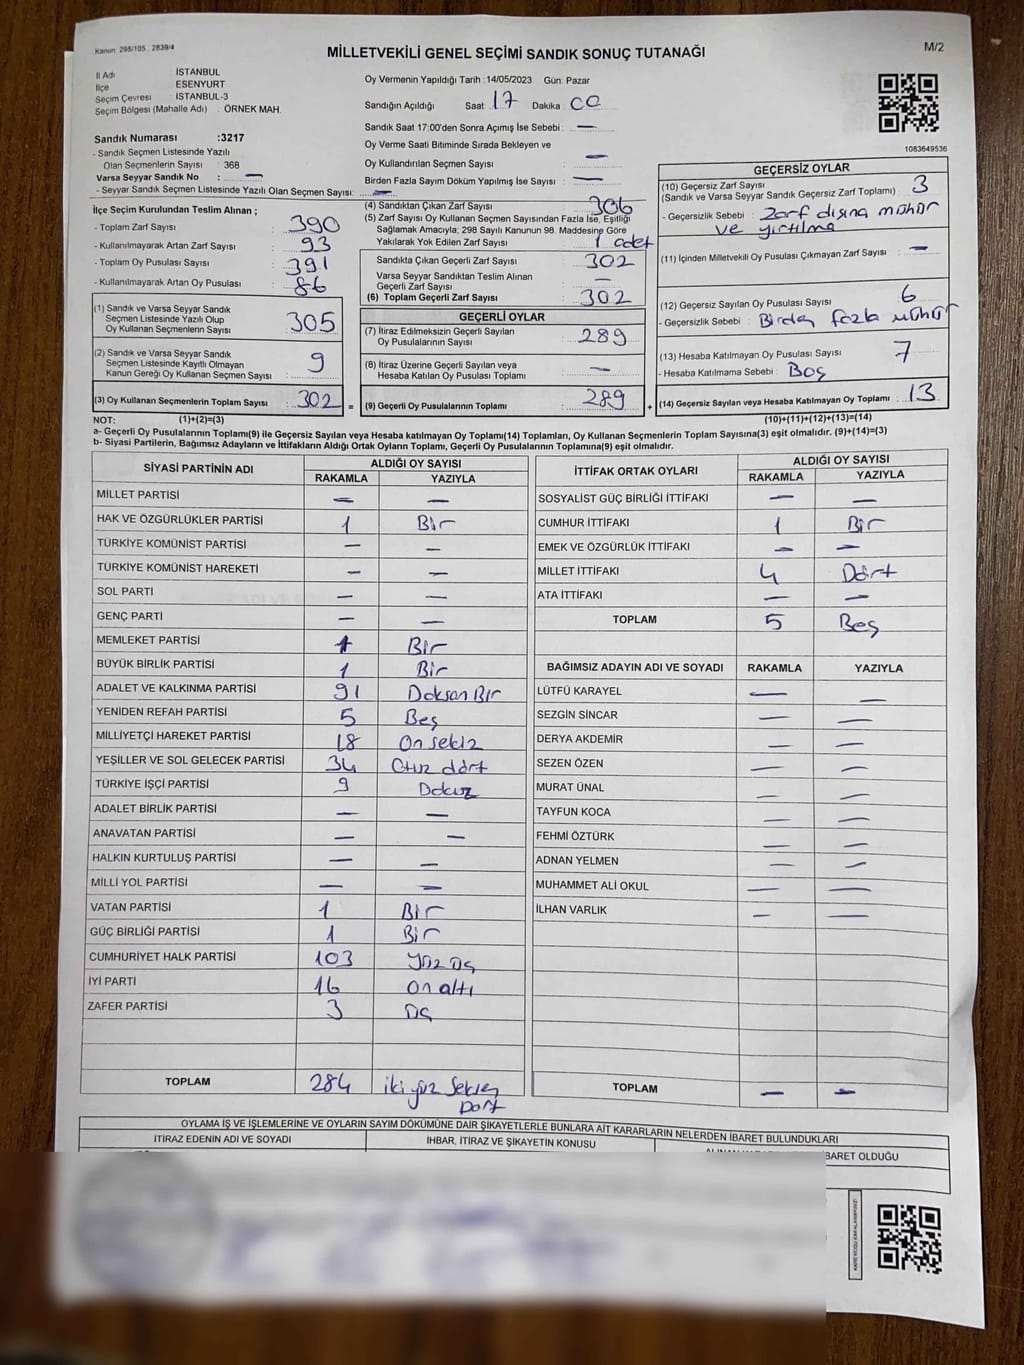 Kanun: 298/105 , 2839/4
MİLLETVEKİLİ GENEL SEÇİMİ SANDIK SONUÇ TUTANAĞI
M/2
İl Adı İSTANBUL
İlçe ESENYURT
Seçim Çevresi İSTANBUL-3
Seçim Bölgesi (Mahalle Adı) : ÖRNEK MAH.
Sandık Numarası :3217
- Sandık Seçmen Listesinde Yazılı
Olan Seçmenlerin Sayısı 368
Varsa Seyyar Sandık No : —
- Seyyar Sandık Seçmen Listesinde Yazılı Olan Seçmen Sayısı: —
Oy Vermenin Yapıldığı Tarih :14/05/2023 Gün: Pazar
Sandığın Açıldığı Saat: 17 Dakika 00
Sandık Saat 17:00'den Sonra Açımış İse Sebebi : —
Oy Verme Saati Bitiminde Sırada Bekleyen ve
Oy Kullandırılan Seçmen Sayısı : —
Birden Fazla Sayım Döküm Yapılmış İse Sayısı : —
1083649536
İlçe Seçim Kurulundan Teslim Alınan ;
- Toplam Zarf Sayısı : 390
- Kullanılmayarak Artan Zarf Sayısı : 93
- Toplam Oy Pusulası Sayısı : 391
- Kullanılmayarak Artan Oy Pusulası : 86
(1) Sandık ve Varsa Seyyar Sandık
Seçmen Listesinde Yazılı Olup
Oy Kullanan Seçmenlerin Sayısı : 305
(2) Sandık ve Varsa Seyyar Sandık
Seçmen Listesinde Kayıtlı Olmayan
Kanun Gereği Oy Kullanan Seçmen Sayısı : 9
(3) Oy Kullanan Seçmenlerin Toplam Sayısı : 302 =
(4) Sandıktan Çıkan Zarf Sayısı : 306
(5) Zarf Sayısı Oy Kullanan Seçmen Sayısından Fazla İse, Eşitliği
Sağlamak Amacıyla; 298 Sayılı Kanunun 98. Maddesine Göre
Yakılarak Yok Edilen Zarf Sayısı : 1 adet
Sandıkta Çıkan Geçerli Zarf Sayısı : 302
Varsa Seyyar Sandıktan Teslim Alınan
Geçerli Zarf Sayısı : —
(6) Toplam Geçerli Zarf Sayısı : 302
GEÇERLİ OYLAR
(7) İtiraz Edilmeksizin Geçerli Sayılan
Oy Pusulalarının Sayısı : 289
(8) İtiraz Üzerine Geçerli Sayılan veya
Hesaba Katılan Oy Pusulası Toplamı : —
(9) Geçerli Oy Pusulalarının Toplamı : 289 +
GEÇERSİZ OYLAR
(10) Geçersiz Zarf Sayısı : 3
(Sandık ve Varsa Seyyar Sandık Geçersiz Zarf Toplamı)
- Geçersizlik Sebebi : Zarf dışına mühür
ve yırtılma
(11) İçinden Milletvekili Oy Pusulası Çıkmayan Zarf Sayısı : —
(12) Geçersiz Sayılan Oy Pusulası Sayısı : 6
- Geçersizlik Sebebi : Birden fazla mühür
(13) Hesaba Katılmayan Oy Pusulası Sayısı : 7
- Hesaba Katılmama Sebebi : Boş
(14) Geçersiz Sayılan veya Hesaba Katılmayan Oy Toplamı : 13
NOT: (1)+(2)=(3)
(10)+(11)+(12)+(13)=(14)
a- Geçerli Oy Pusulalarının Toplamı(9) ile Geçersiz Sayılan veya Hesaba katılmayan Oy Toplamı(14) Toplamları, Oy Kullanan Seçmenlerin Toplam Sayısına(3) eşit olmalıdır. (9)+(14)=(3)
b- Siyasi Partilerin, Bağımsız Adayların ve İttifakların Aldığı Ortak Oyların Toplamı, Geçerli Oy Pusulalarının Toplamına(9) eşit olmalıdır.
SİYASİ PARTİNİN ADI ALDIĞI OY SAYISI
RAKAMLA YAZIYLA
MİLLET PARTİSİ — —
HAK VE ÖZGÜRLÜKLER PARTİSİ 1 Bir
TÜRKİYE KOMÜNİST PARTİSİ — —
TÜRKİYE KOMÜNİST HAREKETİ — —
SOL PARTİ — —
GENÇ PARTİ — —
MEMLEKET PARTİSİ 1 Bir
BÜYÜK BİRLİK PARTİSİ 1 Bir
ADALET VE KALKINMA PARTİSİ 91 Doksan Bir
YENİDEN REFAH PARTİSİ 5 Beş
MİLLİYETÇİ HAREKET PARTİSİ 18 On sekiz
YEŞİLLER VE SOL GELECEK PARTİSİ 34 Otuz dört
TÜRKİYE İŞÇİ PARTİSİ 9 Dokuz
ADALET BİRLİK PARTİSİ — —
ANAVATAN PARTİSİ — —
HALKIN KURTULUŞ PARTİSİ — —
MİLLİ YOL PARTİSİ — —
VATAN PARTİSİ 1 Bir
GÜÇ BİRLİĞİ PARTİSİ 1 Bir
CUMHURİYET HALK PARTİSİ 103 Yüz üç
İYİ PARTİ 16 On altı
ZAFER PARTİSİ 3 Üç
TOPLAM 284 iki yüz Seksen
Dört
İTTİFAK ORTAK OYLARI ALDIĞI OY SAYISI
RAKAMLA YAZIYLA
SOSYALİST GÜÇ BİRLİĞİ İTTİFAKI — —
CUMHUR İTTİFAKI 1 Bir
EMEK VE ÖZGÜRLÜK İTTİFAKI — —
MİLLET İTTİFAKI 4 Dört
ATA İTTİFAKI — —
TOPLAM 5 Beş
BAĞIMSIZ ADAYIN ADI VE SOYADI RAKAMLA YAZIYLA
LÜTFÜ KARAYEL — —
SEZGİN SİNCAR — —
DERYA AKDEMİR — —
SEZEN ÖZEN — —
MURAT ÜNAL — —
TAYFUN KOCA — —
FEHMİ ÖZTÜRK — —
ADNAN YELMEN — —
MUHAMMET ALİ OKUL — —
İLHAN VARLIK — —
TOPLAM — —
OYLAMA İŞ VE İŞLEMLERİNE VE OYLARIN SAYIM DÖKÜMÜNE DAİR ŞİKAYETLERLE BUNLARA AİT KARARLARIN NELERDEN İBARET BULUNDUKLARI
İTİRAZ EDENİN ADI VE SOYADI İHBAR, İTİRAZ VE ŞİKAYETİN KONUSU
BARET OLDUĞU